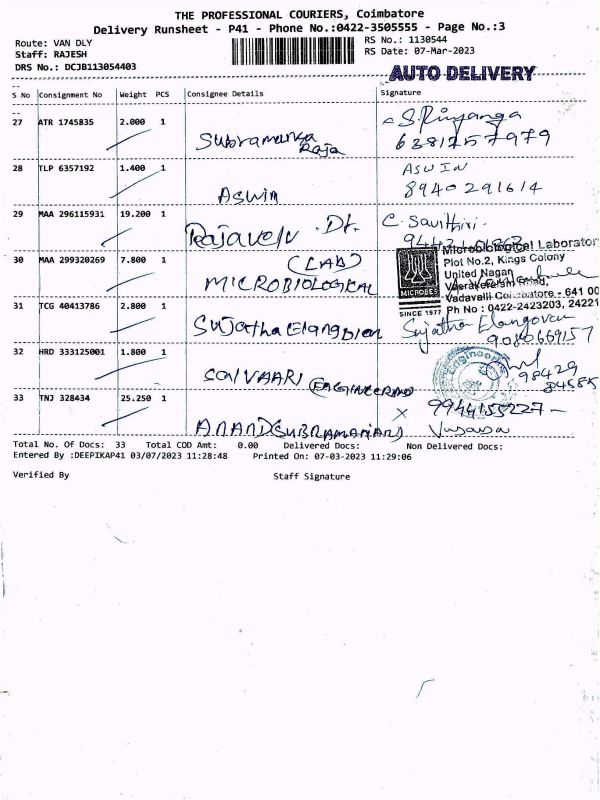 THE PROFESSIONAL COURIERS, Coimbatore
Delivery Runsheet - P41 - Phone No.:0422-3505555 - Page No.:3
Route: VAN DLY RS No.: 1130544
Staff: RAJESH RS Date: 07-Mar-2023
DRS No.: DCJB113054403
AUTO DELIVERY
S No Consignment No Weight PCS Consignee Details Signature
27 ATR 1745835 2.000 1 Subramaniya Raja S. Priyanga
6381757979
28 TLP 6357192 1.400 1 Aswin ASWIN
8940291614
29 MAA 296115931 19.200 1 Rajavelv . Dt. C. Savithiri
30 MAA 299320269 7.800 1 (LAB)
MICROBIOLOGICAL
Microbiological Laboratory
Plot No.2, Kings Colony
United Nagan
Veerakeralam Road,
Vadavalli Coimbatore - 641 00
Ph No : 0422-2423203, 24221
MICROBES
SINCE 1977
31 TCG 40413786 2.800 1 Sujatha Elangovan Sujatha Elangovan
9080669157
32 HRD 333125001 1.800 1 SAIVAARI (ENGGINEERING
Engineering
98429
84585
33 TNJ 328434 25.250 1 ANANDSUBRAMANIAN X 9944155227 -
Total No. Of Docs: 33 Total COD Amt: 0.00 Delivered Docs: Non Delivered Docs:
Entered By :DEEPIKAP41 03/07/2023 11:28:48 Printed On: 07-03-2023 11:29:06
Verified By Staff Signature